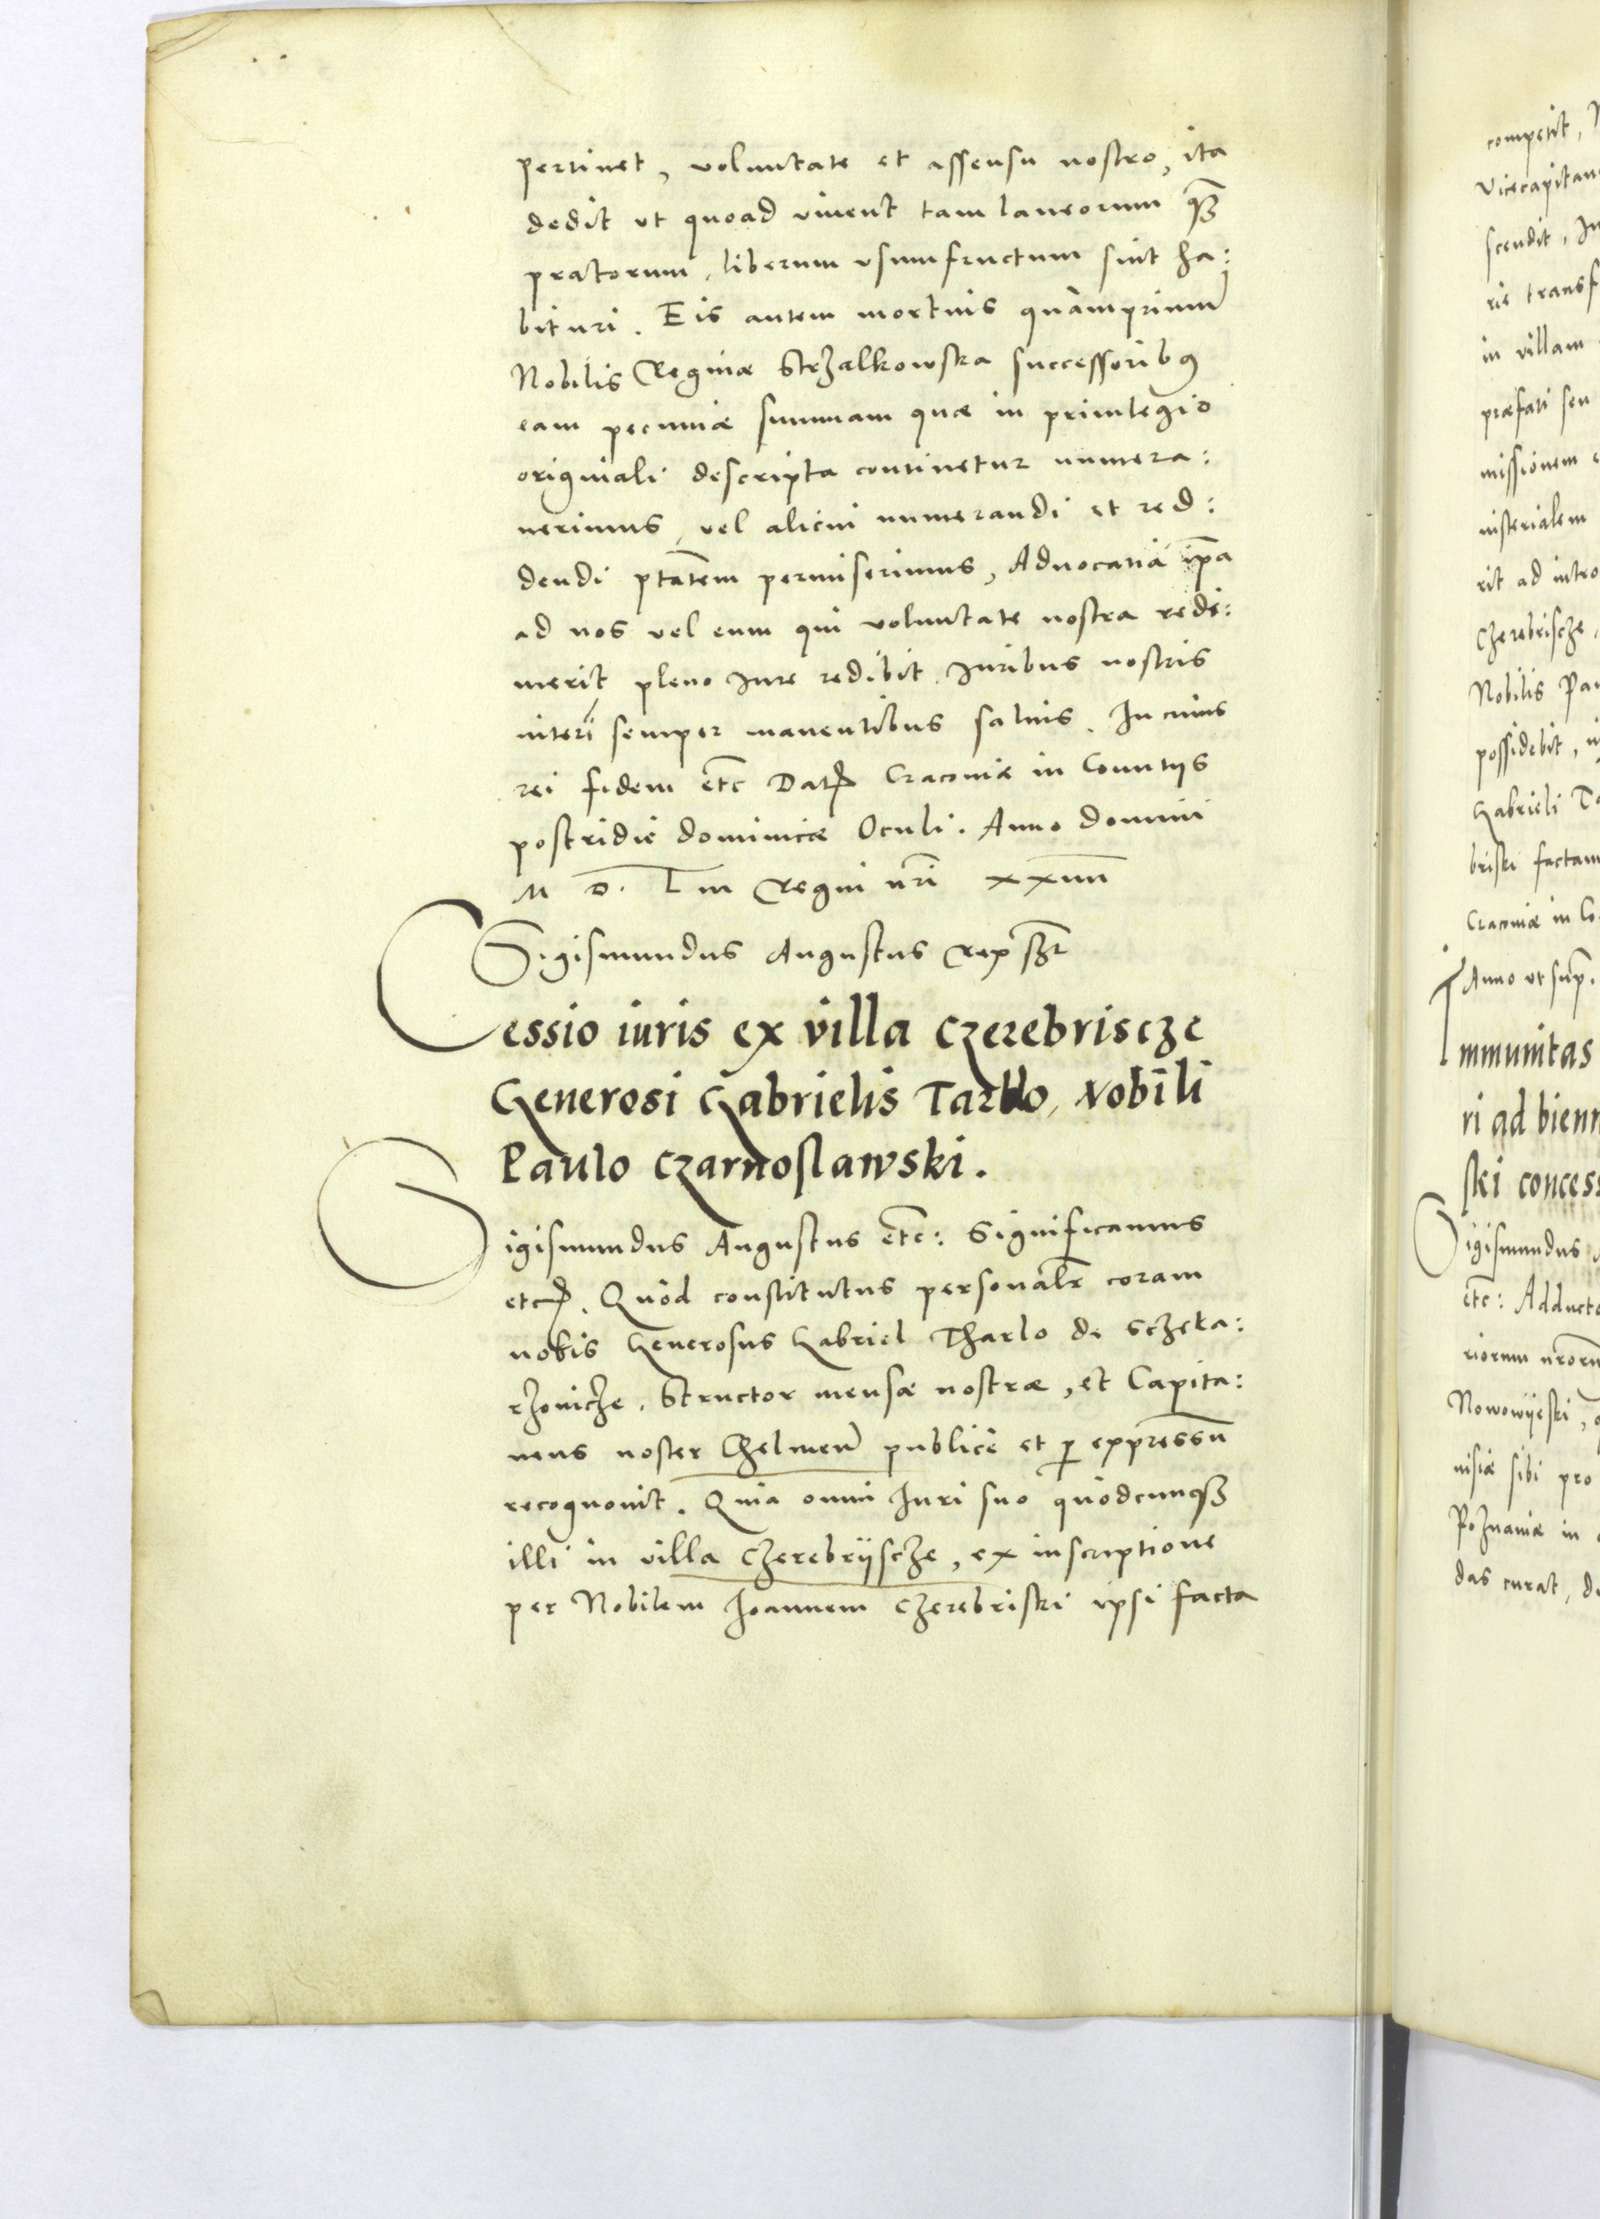 pertinet, voluntate et assensu nostro, ita
dedit vt quoad viuent tam laneorum q̃ȝ
pratorum, liberum vsumfructum sint ha:
bituri. Eis autem mortuis quàmprimũ
Nobilis Reginæ Strzalkowska successoribꝯ
eam pecuniæ summam quæ in priuilegio
originali descripta continetur numera:
uerimus, vel alicui numerandi et red:
dendi ptãtem permiserimus, Aduocatia ip̃a
ad nos vel eum qui voluntate nostra rede:
merit pleno Iure redibit. Iuribus nostris
interĩ semper manentibus saluis. In cuius
rei fidem etc̃ Datꝭ Cracoviæ in Conuẽtys
postridie dominicæ Oculi. Anno domini
M D. L iii Regni nr̃i xxiiii
Sigismundus Augustus Rex sz̃r
Cessio iuris ex villa Czerebriscze
Generosi Gabrielis Tarlo, Nobili
Paulo Czarnoslawski.
Sigismundus Augustus etc̃: Significamus
etcꝭ. Quòd constitutus personalr̃ coram
nobis Generosus Gabriel Tharlo de Sczeka:
rzouicze, Structor mensæ nostræ, et Capita:
neus noster Chelmeñ publicè et ꝑ expressũ
recognouit. Quia omni Iuri suo quòdcunqȝ
illi in villa Czerebryscze, ex inscriptione
per Nobilem Ioannem Czerebriski ipsi facta
competit,
Vicecapitan
scendit, In
ris transf
in villam
præfati seu
missionem
nisterialem
rit ad intro
Czerebriscze,
Nobilis Pau
possidebit,
Gabrieli Ta
briski factam
Cracoviæ in Co
Anno vt sup̃.
Immunitas
ri ad bienn
ski concess
Sigismundus
etc̃: Adducto
riorum nr̃orũ
Nowowiieski,
nisiæ sibi pro
Poznaniæ in
das curat, d